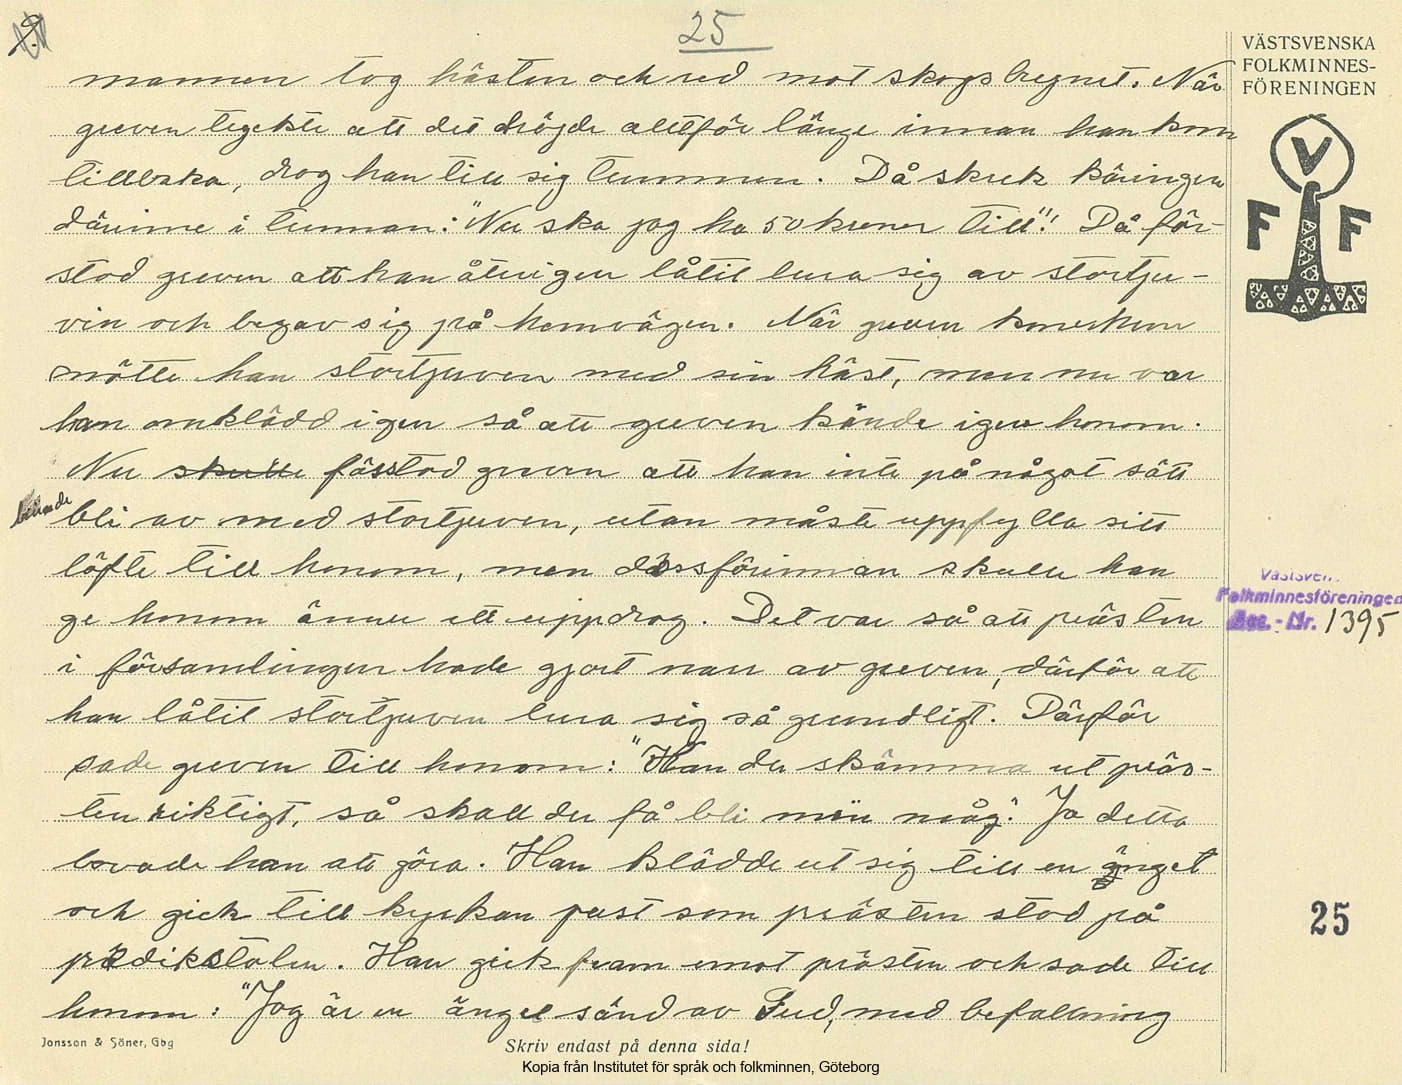 9.
25
mannen tog hästen och red mot skogsbrynet. När
greven tyckte att det dröjde alltför länge innan han kom
tillbaka, drog han till sig tummen. Då skrek käringen
därinne i tunnan: "Nu ska jag ha 50 kronor till"! Då för-
stod greven att han återigen låtit lura sig av stortju-
ven och begav sig på hemvägen. När greven kom hem
mötte han stortjuven med sin häst, men nu var
han omklädd igen så att greven kände igen honom.
Nu skulle förstod greven att han inte på något sätt
kunde bli av med stortjuven, utan måste uppfylla sitt
löfte till honom, men dessförinnan skulle han
ge honom ännu ett uppdrag. Det var så att prästen
i församlingen hade gjort narr av greven, därför att
han låtit stortjuven lura sig så grundligt. Därför
sade greven till honom: "Kan du skämma ut präs-
ten riktigt, så skall du få bli min måg". Ja detta
lovade han att göra. Han klädde ut sig till en ängel
och gick till kyrkan just som prästen stod på
predikstolen. Han gick fram emot prästen och sade till
honom: "Jag är en ängel sänd av Gud, med befallning
VÄSTSVENSKA
FOLKMINNES-
FÖRENINGEN
V
F F
Västsven.
Folkminnesföreningen
Acc. - Nr. 1395
25
Jonsson & Söner, Gbg
Skriv endast på denna sida!
Kopia från Institutet för språk och folkminnen, Göteborg